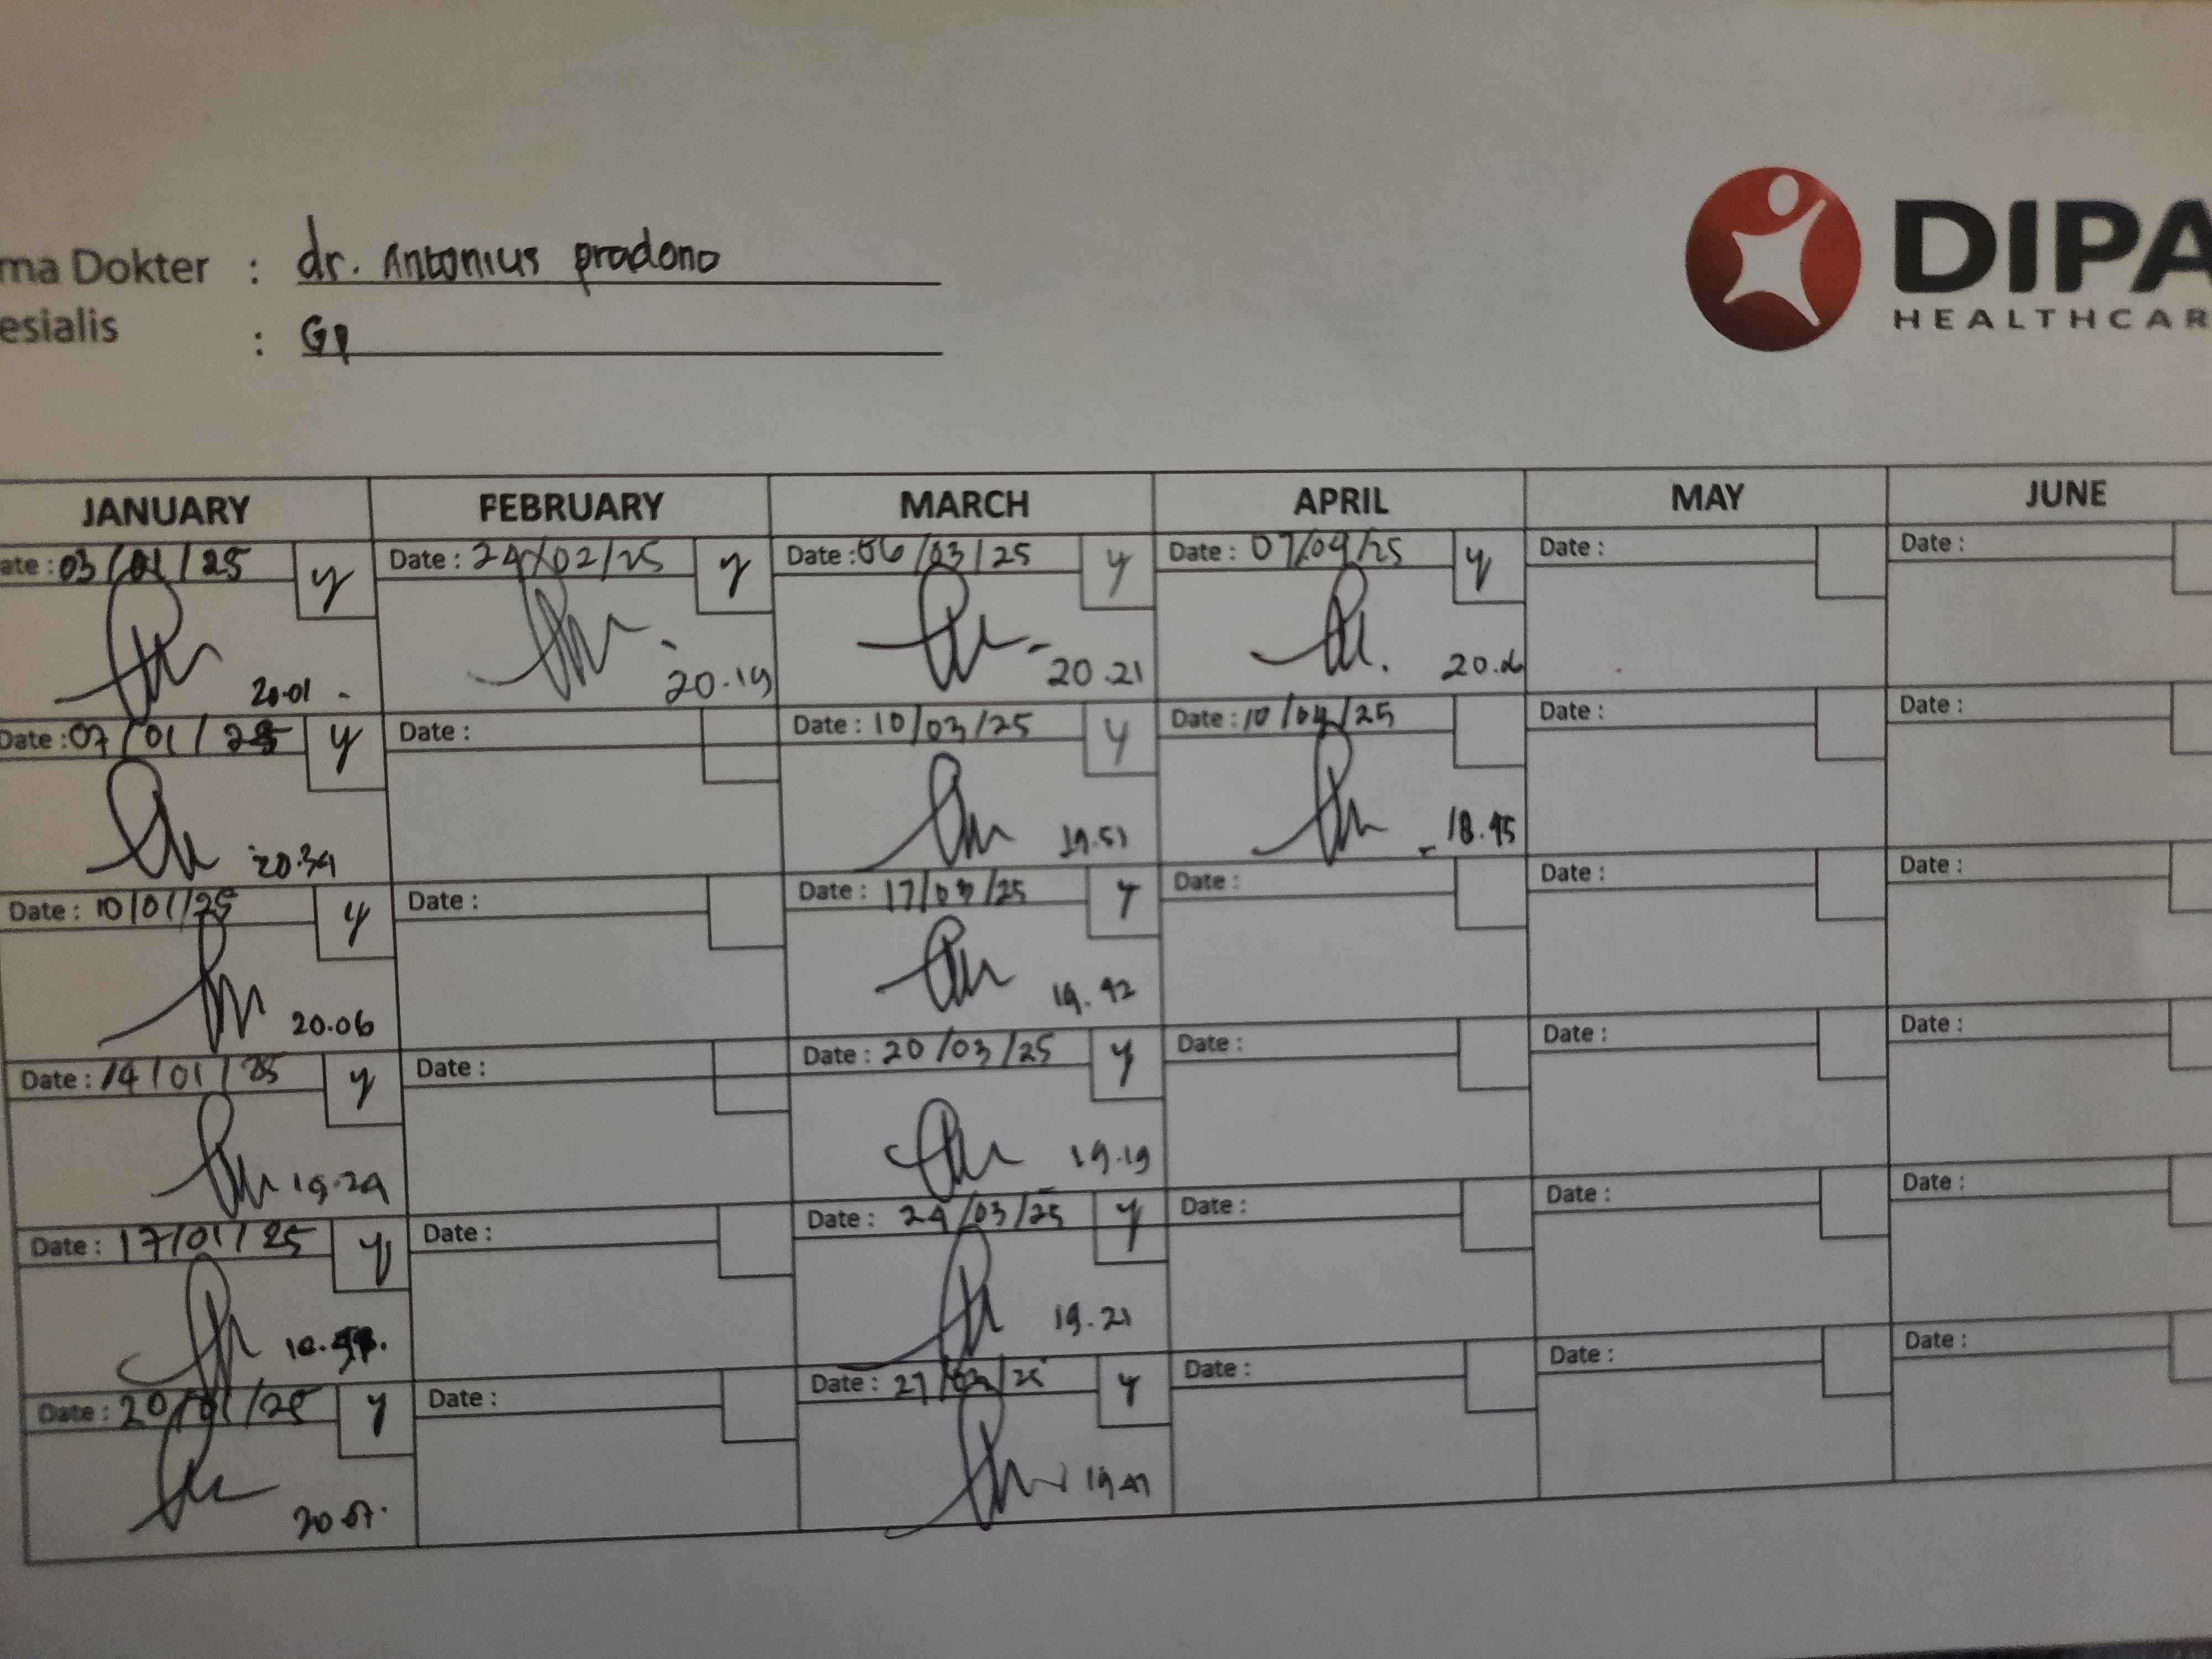 ma Dokter : dr. Antonius pradono
esialis : GP
DIPA
HEALTHCAR
JANUARY FEBRUARY MARCH APRIL MAY JUNE
ate : 03/01/25 y Date : 24/02/25 y Date : 06/03/25 y Date : 07/04/25 y Date : Date :
20.01 20.19 20.21
Date : 07/01/25 y Date : Date : 10/03/25 y Date : 10/04/25 Date : Date :
20.34 19.51 18.45
Date : 10/01/25 y Date : Date : 17/03/25 y Date : Date : Date :
20.06 19.42
Date : 14/01/25 y Date : Date : 20/03/25 y Date : Date : Date :
19.24 19.19
Date : 17/01/25 y Date : Date : 24/03/25 y Date : Date : Date :
19.21
Date : 20/01/25 y Date : Date : 27/03/25 y Date : Date : Date :